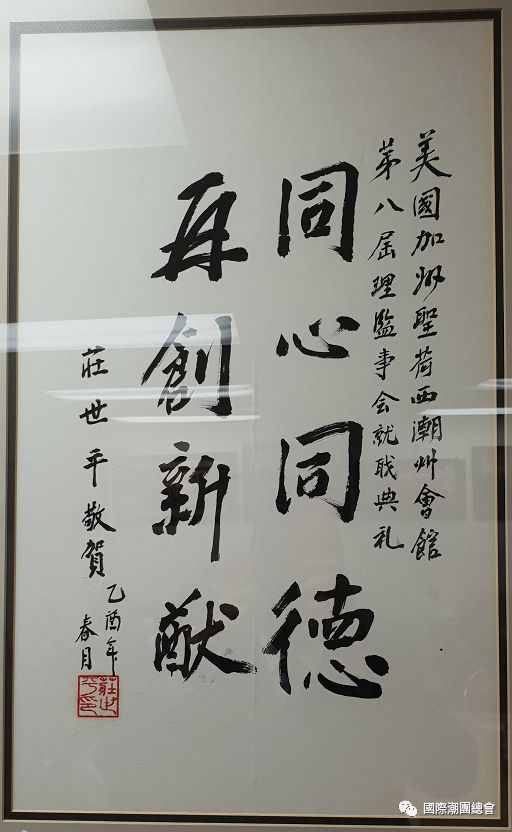 美國加州聖荷西潮州會館
第八屆理監事会就職典礼
同心同德
再創新献
莊世平敬賀
乙酉年
春月
莊世平印
國際潮團總會